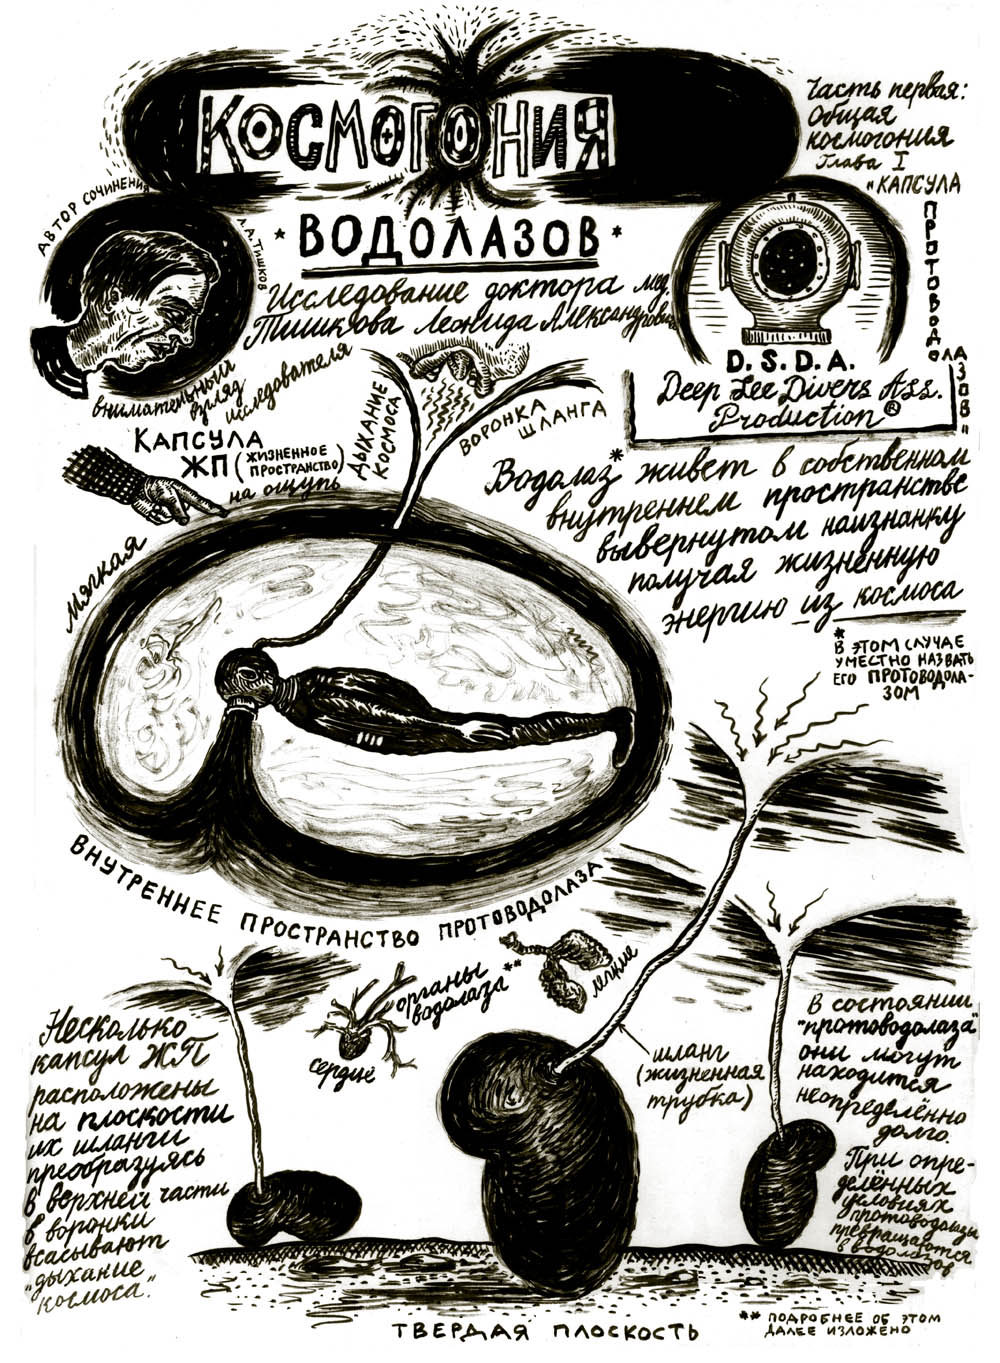 КОСМОГОНИЯ
* ВОДОЛАЗОВ *
Часть первая:
Общая
космогония
Глава I
"КАПСУЛА
ПРОТОВОДОЛАЗОВ"
АВТОР СОЧИНЕНИЯ
Л.А. ТИШКОВ
внимательный
взгляд
исследователя
Исследование доктора мед.
Тишкова Леонида Александровича
D.S.D.A.
Deep See Divers Ass.
Production®
КАПСУЛА
ЖП (ЖИЗНЕННОЕ
ПРОСТРАНСТВО)
на ощупь
мягкая
ДЫХАНИЕ
КОСМОСА
ВОРОНКА
ШЛАНГА
Водолаз* живет в собственном
внутреннем пространстве
вывернутом наизнанку
получая жизненную
энергию из космоса
* В ЭТОМ СЛУЧАЕ
УМЕСТНО НАЗВАТЬ
ЕГО ПРОТОВОДОЛА-
ЗОМ
ВНУТРЕННЕЕ ПРОСТРАНСТВО ПРОТОВОДОЛАЗА
органы
водолаза**
сердце
лёгкие
шланг
(жизненная
трубка)
Несколько
капсул ЖП
расположены
на плоскости
их шланги
преобразуясь
в верхней части
в воронки
всасывают
"дыхание
космоса."
В состоянии
"протоводолаза"
они могут
находится
неопределённо
долго.
При опре-
делённых
условиях
протоводолазы
превращаются
в водолазов
ТВЕРДАЯ ПЛОСКОСТЬ
** ПОДРОБНЕЕ ОБ ЭТОМ
ДАЛЕЕ ИЗЛОЖЕНО